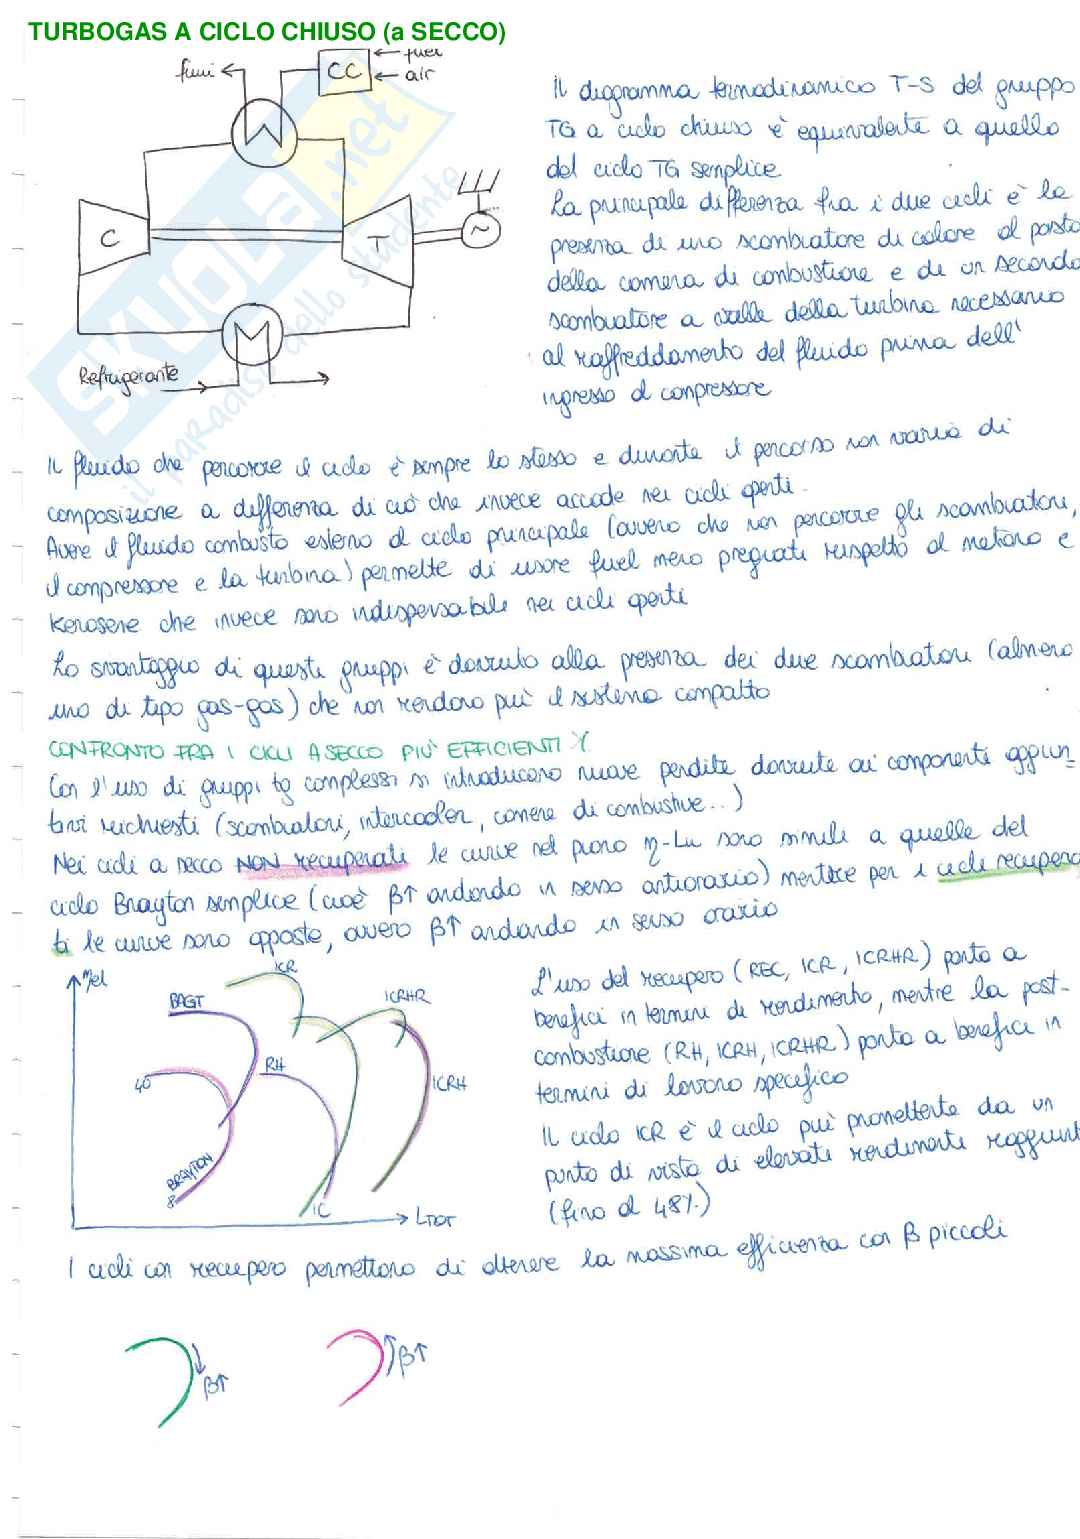 TURBOGAS A CICLO CHIUSO (a SECCO)
fumi
CC
fuel
air
C
T
~
Refrigerante
Il diagramma termodinamico T-S del gruppo
TG a ciclo chiuso è equivalente a quello
del ciclo TG semplice
La principale differenza fra i due cicli è la
presenza di uno scambiatore di calore al posto
della camera di combustione e di un secondo
scambiatore a valle della turbina necessario
al raffreddamento del fluido prima dell'
ingresso al compressore
SKUOLA.net
il paradiso dello studente
Il fluido che percorre il ciclo è sempre lo stesso e durante il percorso non varia di
composizione a differenza di ciò che invece accade nei cicli aperti.
Avere il fluido combusto esterno al ciclo principale (ovvero che non percorre gli scambiatori,
il compressore e la turbina) permette di usare fuel meno pregiati rispetto al metano e
Kerosene che invece sono indispensabile nei cicli aperti
Lo svantaggio di questi gruppi è dovuto alla presenza dei due scambiatori (almeno
uno di tipo gas-gas) che non rendono più il sistema compatto
CONFRONTO FRA I CICLI A SECCO PIÙ EFFICIENTI
Con l'uso di gruppi tg complessi si introducono nuove perdite dovute ai componenti aggiun
tivi richiesti (scambiatori, intercooler, camere di combustione...)
Nei cicli a secco NON recuperati le curve nel piano η-Lu sono simili a quelle del
ciclo Brayton semplice (cioè β↑ andando in senso antiorario) mentre per i cicli recupera
ti le curve sono opposte, ovvero β↑ andando in senso orario
ηel
ICR
BAGT
ICRHR
40
RH
ICRH
BRAYTON
8
IC
LTOT
L'uso del recupero (REC, ICR, ICRHR) porta a
benefici in termini di rendimento, mentre la post-
combustione (RH, ICRH, ICRHR) porta a benefici in
termini di lavoro specifico
Il ciclo ICR è il ciclo più promettente da un
punto di vista di elevati rendimenti raggiunti
(fino al 48%)
I cicli con recupero permettono di ottenere la massima efficienza con β piccoli
β↑
β↑